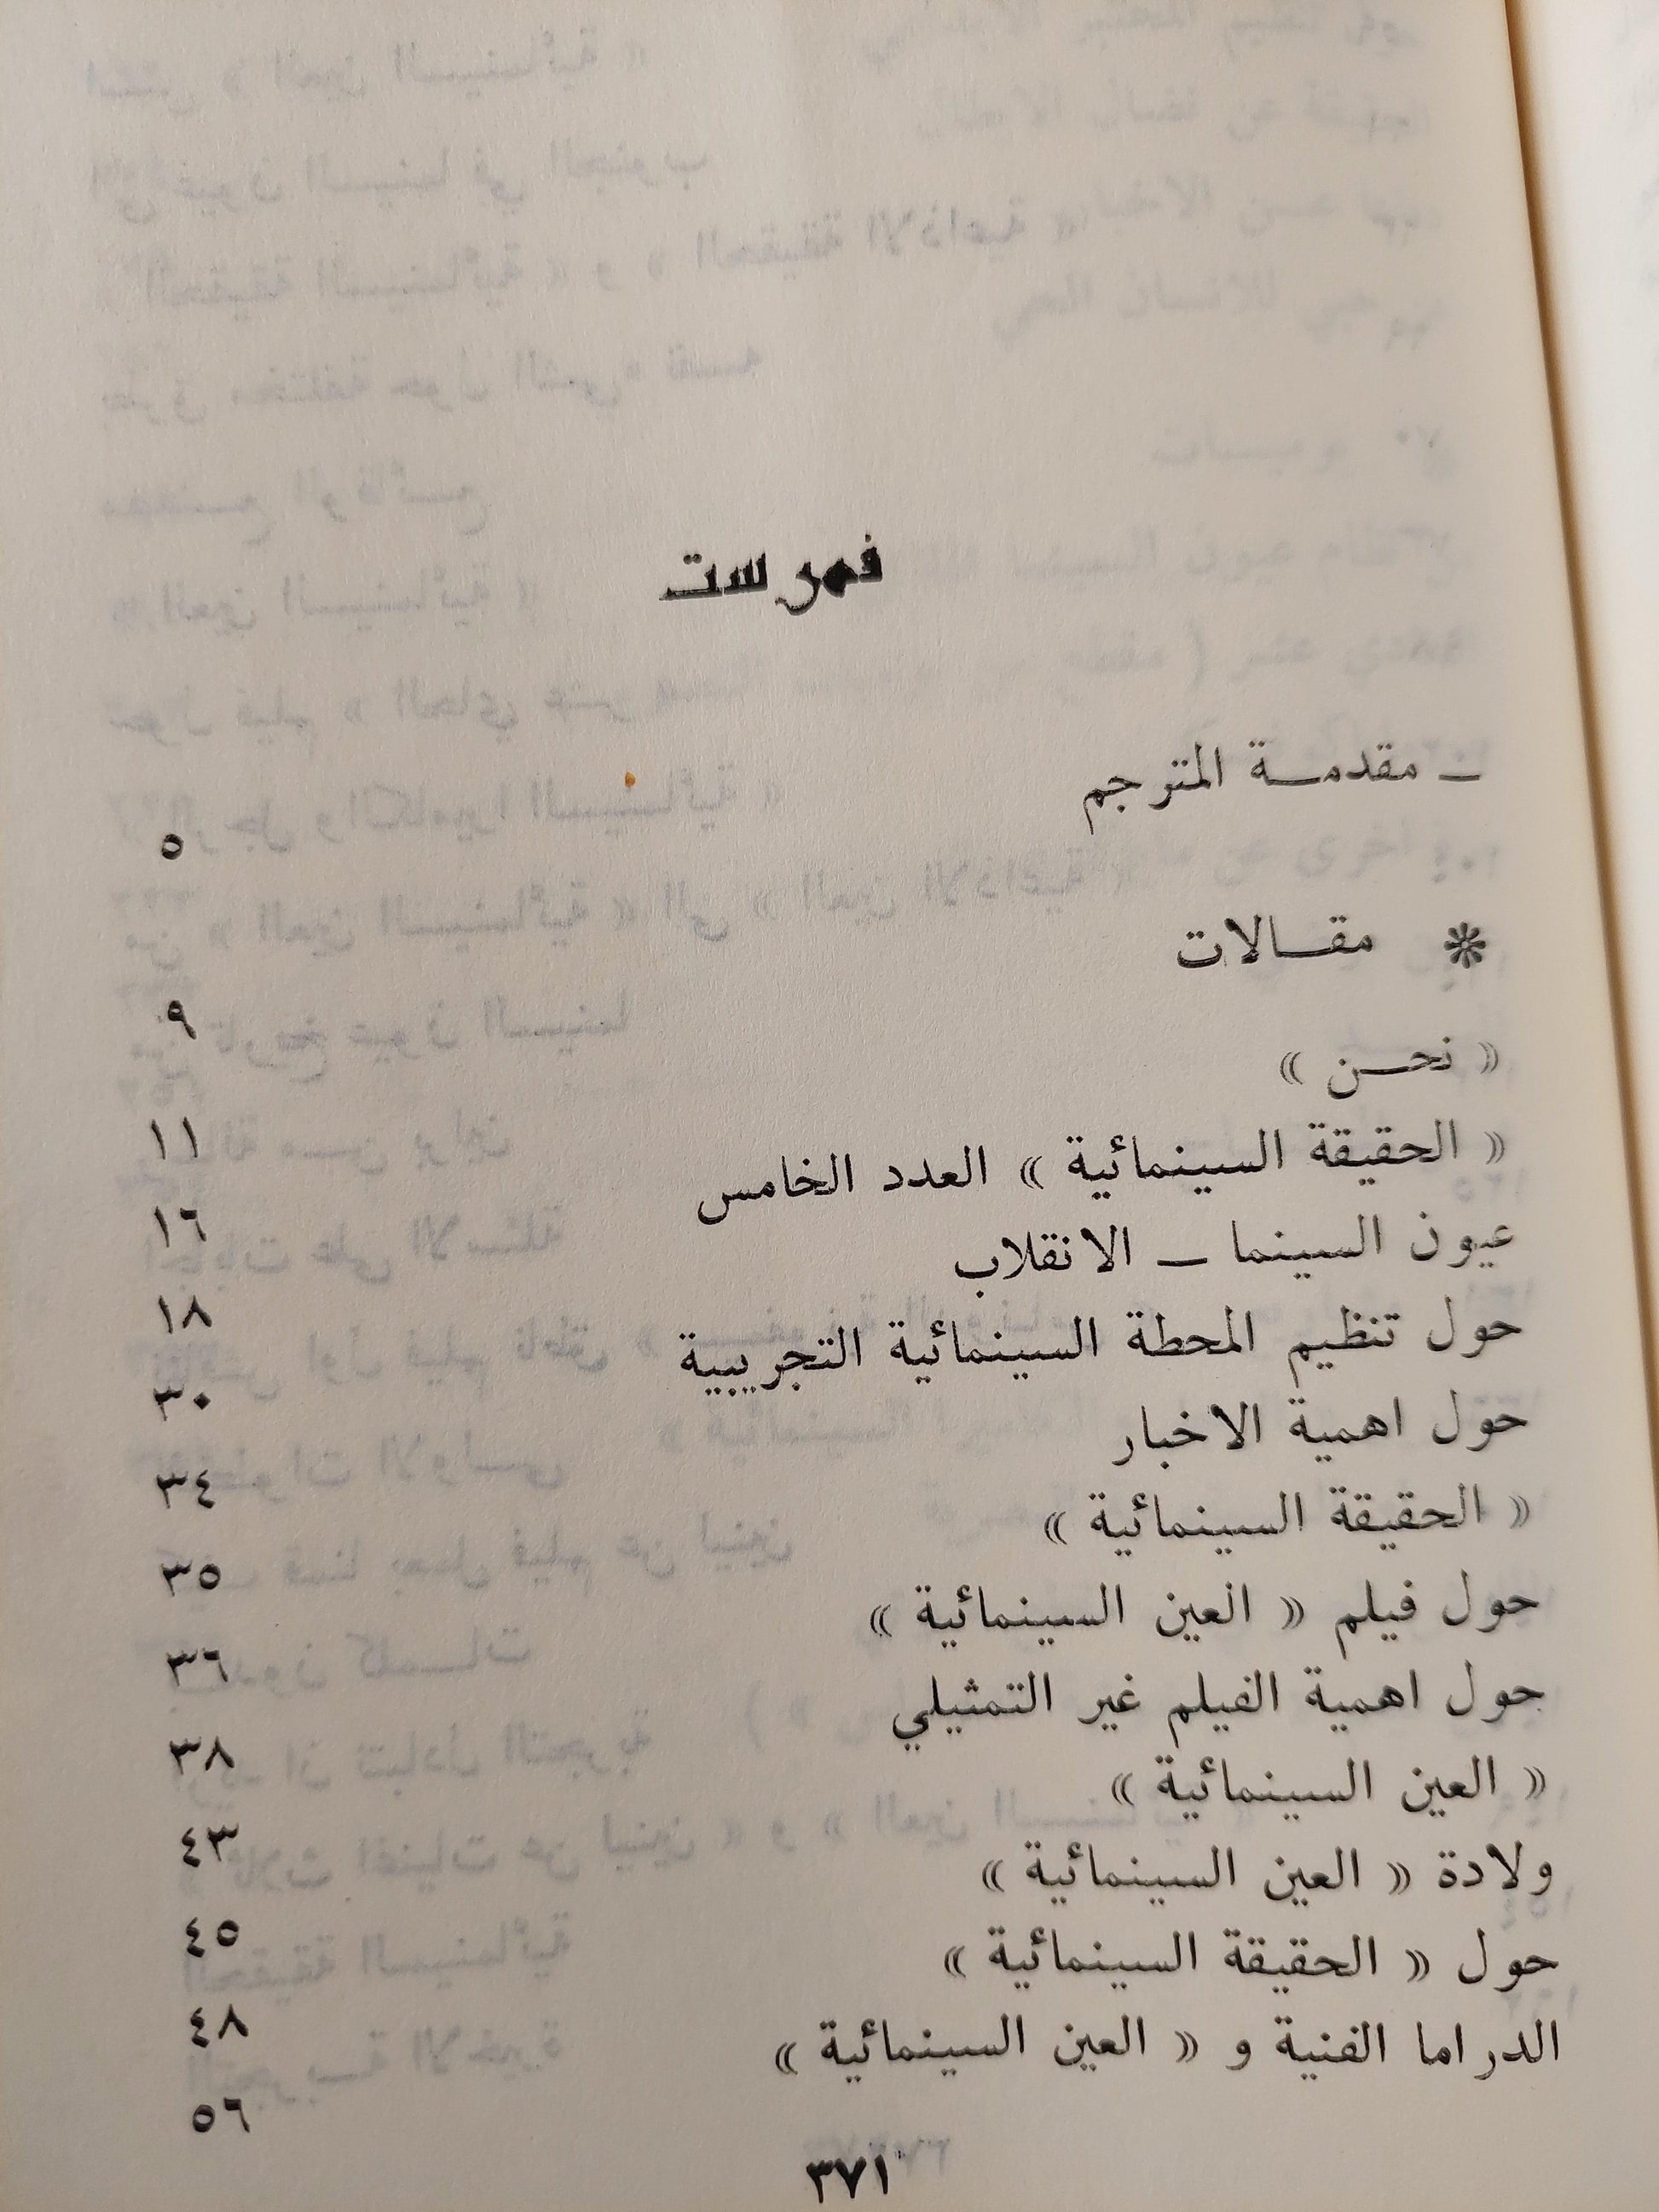 فهرست
ــ مقدمــة المترجم ٥
* مقــالات ٩
« نحــن » ١١
« الحقيقة السينمائية » العدد الخامس ١٦
عيون السينما ــ الانقلاب ١٨
حول تنظيم المحطة السينمائية التجريبية ٣٠
حول اهمية الاخبار ٣٤
« الحقيقة السينمائية » ٣٥
حول فيلم « العين السينمائية » ٣٦
حول اهمية الفيلم غير التمثيلي ٣٨
« العين السينمائية » ٤٣
ولادة « العين السينمائية » ٤٥
حول « الحقيقة السينمائية » ٤٨
الدراما الفنية و « العين السينمائية » ٥٦
٣٧١